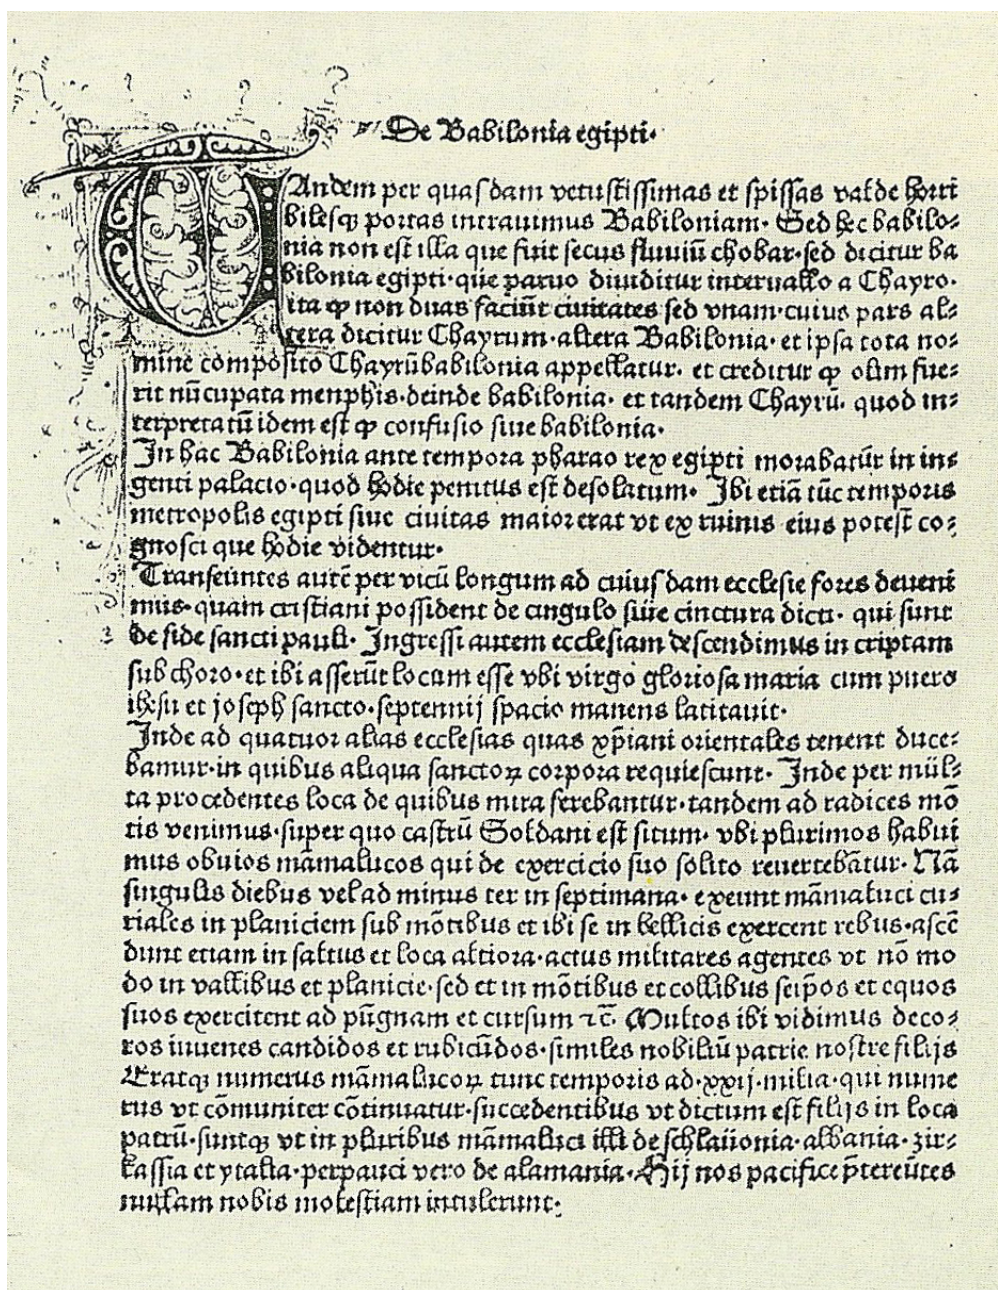 De Babilonia egipti·
TAndem per quasdam vetustissimas et spissas valde horri
bilesqꝫ portas intrauimus Babiloniam· Sed hec babilo⸗
nia non est illa que fuit secus fluuiū chobar·sed dicitur ba
bilonia egipti·que paruo diuiditur interuallo a Chayro·
ita ꝙ non duas faciūt ciuitates sed vnam·cuius pars al⸗
tera dicitur Chayrum·altera Babilonia·et ipsa tota no⸗
mine composito Chayrūbabilonia appellatur· et creditur ꝙ olim fue⸗
rit nūcupata menphis·deinde babilonia· et tandem Chayrū· quod in⸗
terpretatū idem est ꝙ confusio siue babilonia·
In hac Babilonia ante tempora pharao rex egipti morabatur in in⸗
genti palacio·quod hodie penitus est desolatum· Ibi etiā tūc temporis
metropolis egipti siue ciuitas maior erat vt ex ruinis eius potest co⸗
gnosci que hodie videntur·
Transeuntes autē per vicū longum ad cuiusdam ecclesie fores deueni
mus·quam cristiani possident de cingulo siue cinctura dicti· qui sunt
de side sancti pauli· Ingressi autem ecclesiam descendimus in criptam
sub choro·et ibi asserūt locum esse vbi virgo gloriosa maria cum puero
ihesu et joseph sancto·septennij spacio manens latitauit·
Inde ad quatuor alias ecclesias quas xp̄iani orientales tenent duce⸗
bamur·in quibus aliqua sanctoꝝ corpora requiescunt· Inde per mul⸗
ta procedentes loca de quibus mira ferebantur·tandem ad radices mō
tis venimus·super quo castrū Soldani est situm· vbi plurimos habui
mus obuios māmalucos qui de exercicio suo solito reuertebātur· Nā
singulis diebus vel ad minus ter in septimana·exeunt māmaluci cu⸗
riales in planiciem sub mōtibus et ibi se in bellicis exercent rebus·ascē
dunt etiam in saltus et loca altiora·actus militares agentes vt nō mo
do in vallibus et planicie·sed et in mōtibus et collibus seip̄os et equos
suos exercitent ad pugnam et cursum ⁊c̄· Multos ibi vidimus deco⸗
ros iuuenes candidos et rubicūdos·similes nobiliū patrie nostre filijs
Eratqꝫ numerus māmalucoꝝ tunc temporis ad·xxij·milia·qui nume
rus vt cōmuniter cōtinuatur·succedentibus vt dictum est filijs in loca
patrū·suntqꝫ vt in pluribus māmaluci illi de schlauonia·albania·zir⸗
kassia et ytalia·perpauci vero de alamania·Hij nos pacifice p̄tereūtes
nullam nobis molestiam intulerunt·